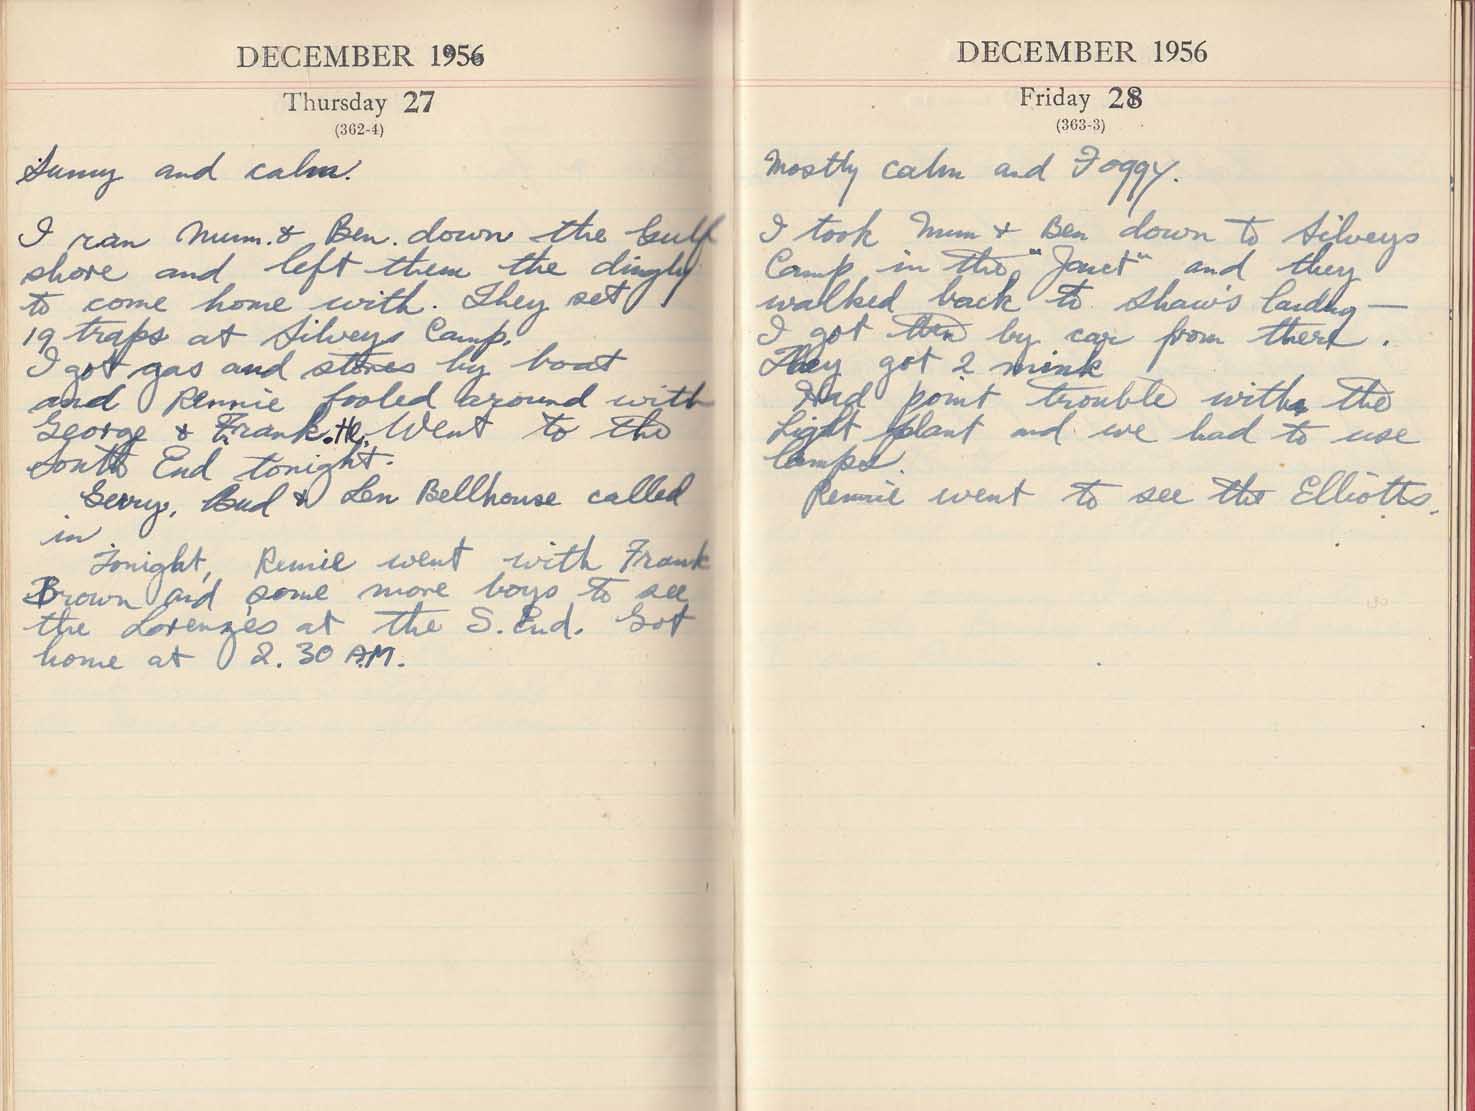 DECEMBER 1956
Thursday 27
(362-4)
Sunny and calm.
I ran Mum. & Ben. down the Gulf
shore and left them the dinghy
to come home with. They set
19 traps at Silveys Camp.
I got gas and stores by boat
and Rennie fooled around with
George & Frank. H. Went to the
South End tonight.
Gerry, Bud & Len Bellhouse called
in
Tonight, Rennie went with Frank
Brown and some more boys to see
the Lorenzes at the S. End. Got
home at 2.30 A.M.
DECEMBER 1956
Friday 28
(363-3)
Mostly calm and Foggy.
I took Mum & Ben down to Silveys
Camp in the "Janet" and they
walked back to Shaw's landing —
I got them by car from there.
They got 2 mink
Had point trouble with the
Light plant and we had to use
lamps.
Rennie went to see the Elliotts.